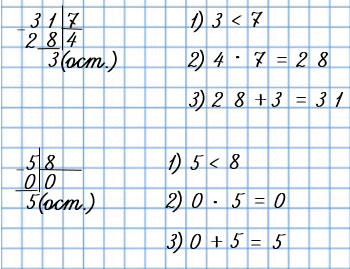 31 7
28 4
3(ост.)
1) 3 < 7
2) 4 · 7 = 28
3) 28 + 3 = 31
5 8
0 0
5(ост.)
1) 5 < 8
2) 0 · 5 = 0
3) 0 + 5 = 5